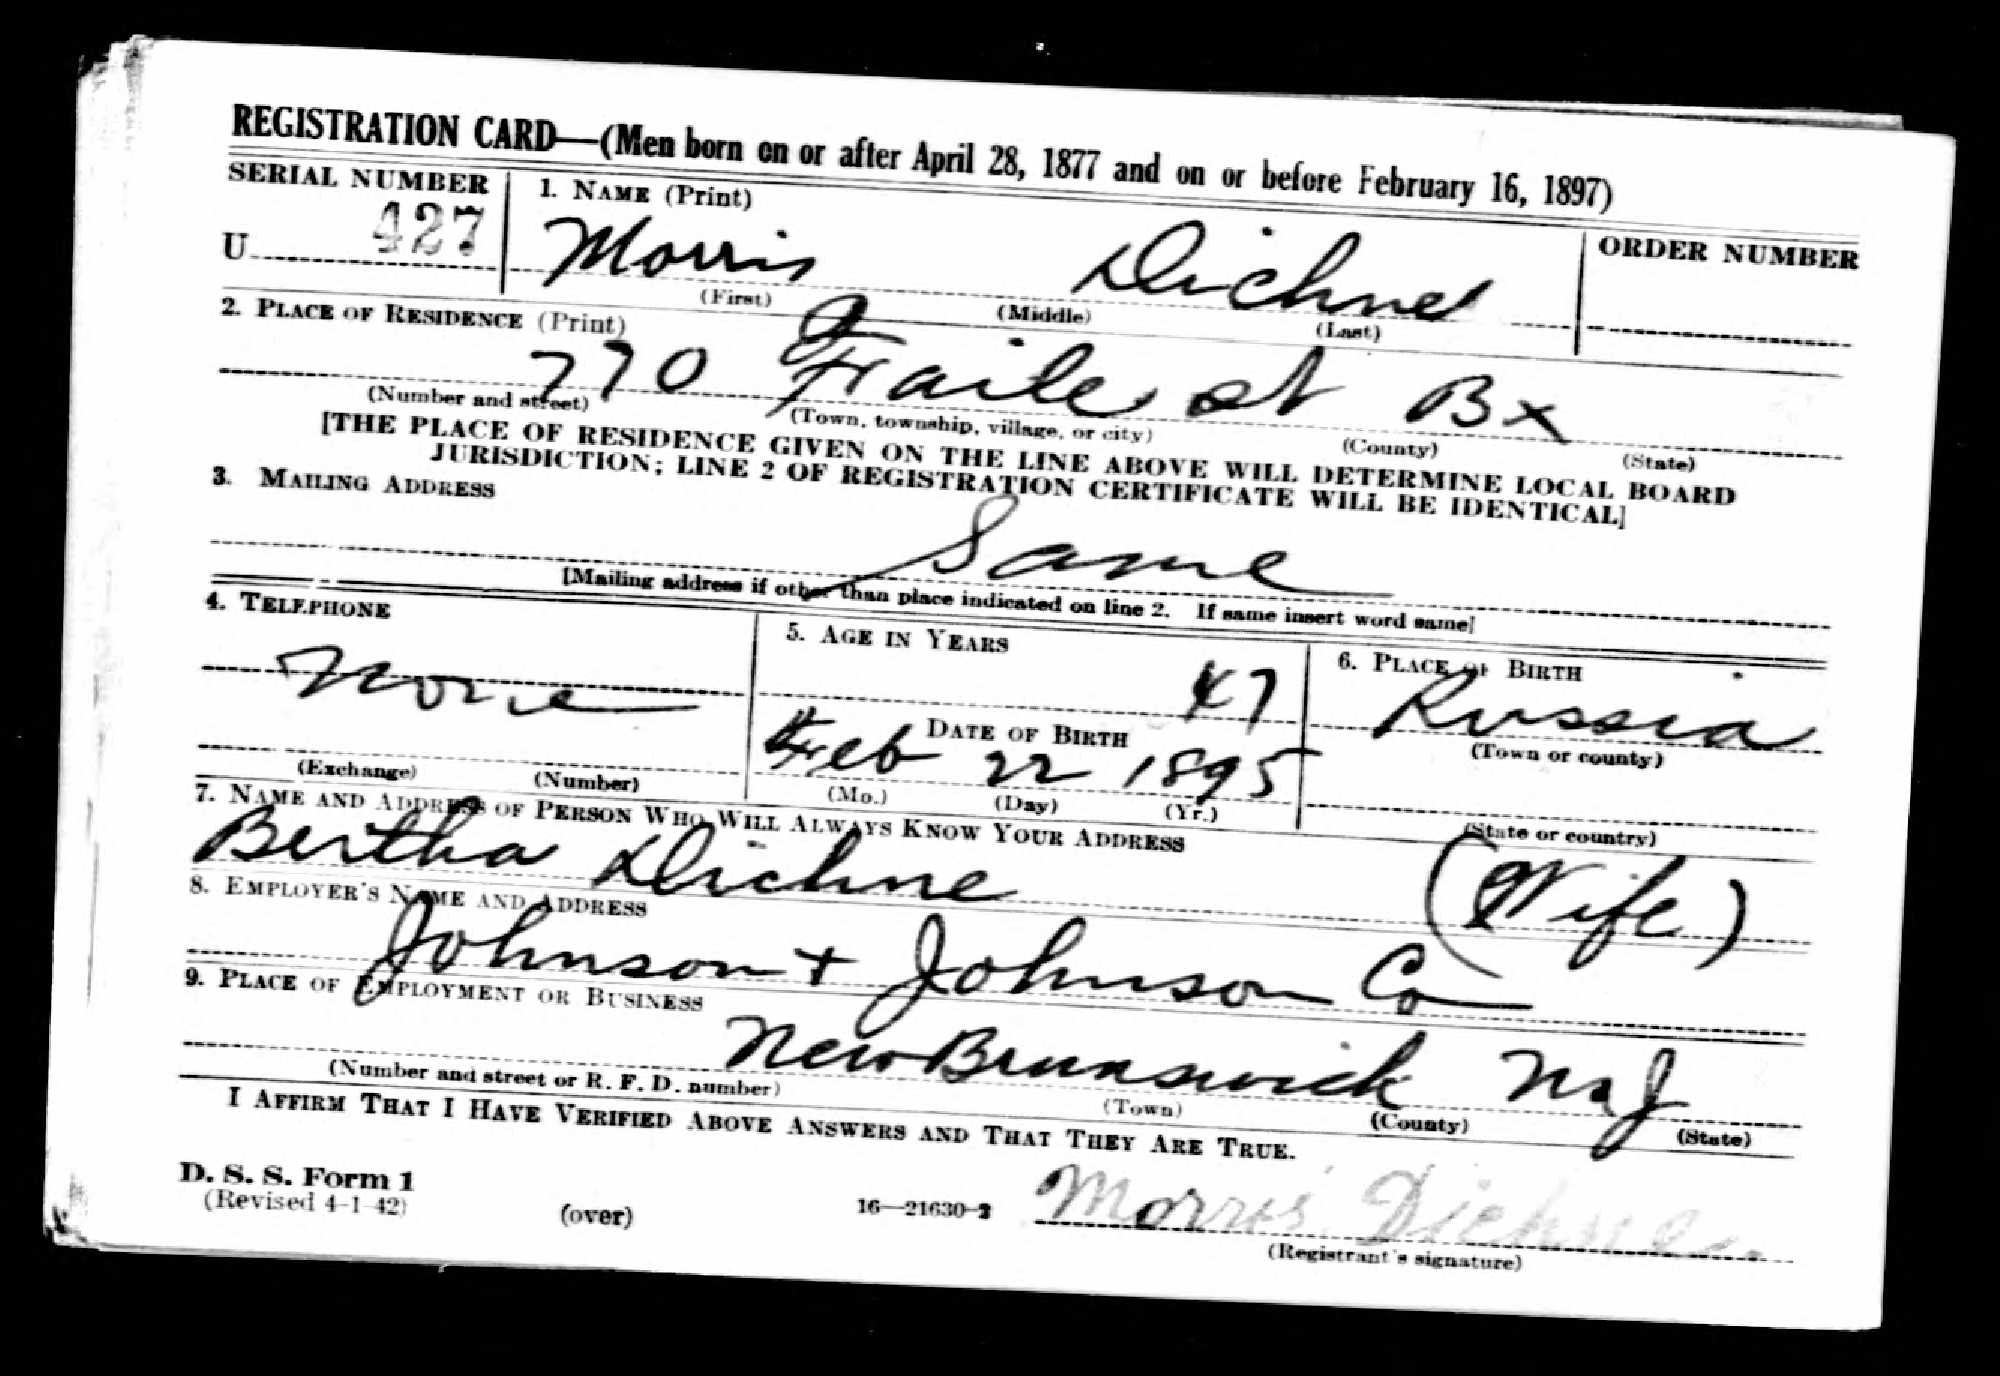 REGISTRATION CARD—(Men born on or after April 28, 1877 and on or before February 16, 1897)
SERIAL NUMBER
1. NAME (Print)
ORDER NUMBER
U 427
Morris Dichne
(First) (Middle) (Last)
2. PLACE OF RESIDENCE (Print)
770 Faile st Bx
(Number and street) (Town, township, village, or city) (County) (State)
[THE PLACE OF RESIDENCE GIVEN ON THE LINE ABOVE WILL DETERMINE LOCAL BOARD
JURISDICTION; LINE 2 OF REGISTRATION CERTIFICATE WILL BE IDENTICAL]
3. MAILING ADDRESS
Same
[Mailing address if other than place indicated on line 2. If same insert word same]
4. TELEPHONE
5. AGE IN YEARS
6. PLACE OF BIRTH
None
47
Russia
(Town or county)
DATE OF BIRTH
Feb 22 1895
(Exchange) (Number)
(Mo.) (Day) (Yr.)
(State or country)
7. NAME AND ADDRESS OF PERSON WHO WILL ALWAYS KNOW YOUR ADDRESS
Bertha Dichne (Wife)
8. EMPLOYER'S NAME AND ADDRESS
Johnson + Johnson Co
9. PLACE OF EMPLOYMENT OR BUSINESS
New Brunswick N.J
(Number and street or R. F. D. number) (Town) (County) (State)
I AFFIRM THAT I HAVE VERIFIED ABOVE ANSWERS AND THAT THEY ARE TRUE.
D. S. S. Form 1
(Revised 4-1-42)
(over)
16—21630-2
Morris Dichne
(Registrant's signature)